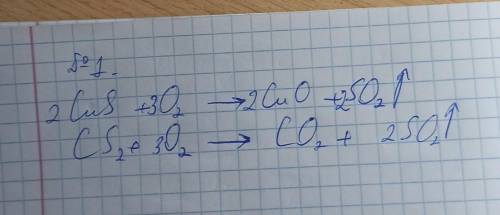 №1.
2CuS + 3O₂ → 2CuO + 2SO₂↑
CS₂ + 3O₂ → CO₂ + 2SO₂↑